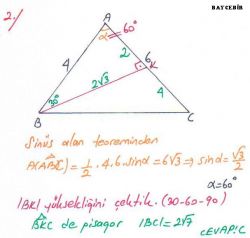 BAYCEBİR
2./
A
α = 60°
2
6
4
2√3
4
30°
B
C
Sinüs alan teoreminden
A(ABC) = 1/2 . 4.6. sinα = 6√3 ⇒ sinα = √3/2
α = 60°
|BK| yüksekliğini çektik. (30-60-90)
BKC de pisagor |BC| = 2√7
CEVAP: C